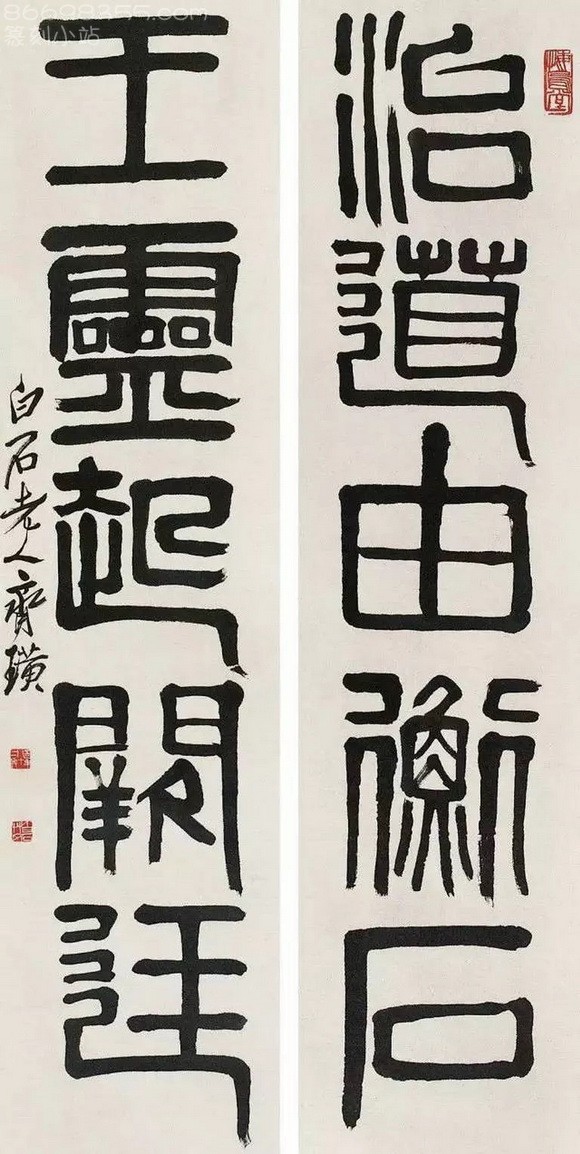 治道由衡石
王靈起闕廷
白石老人齊璜
悔烏堂
86698355.com
篆刻小站